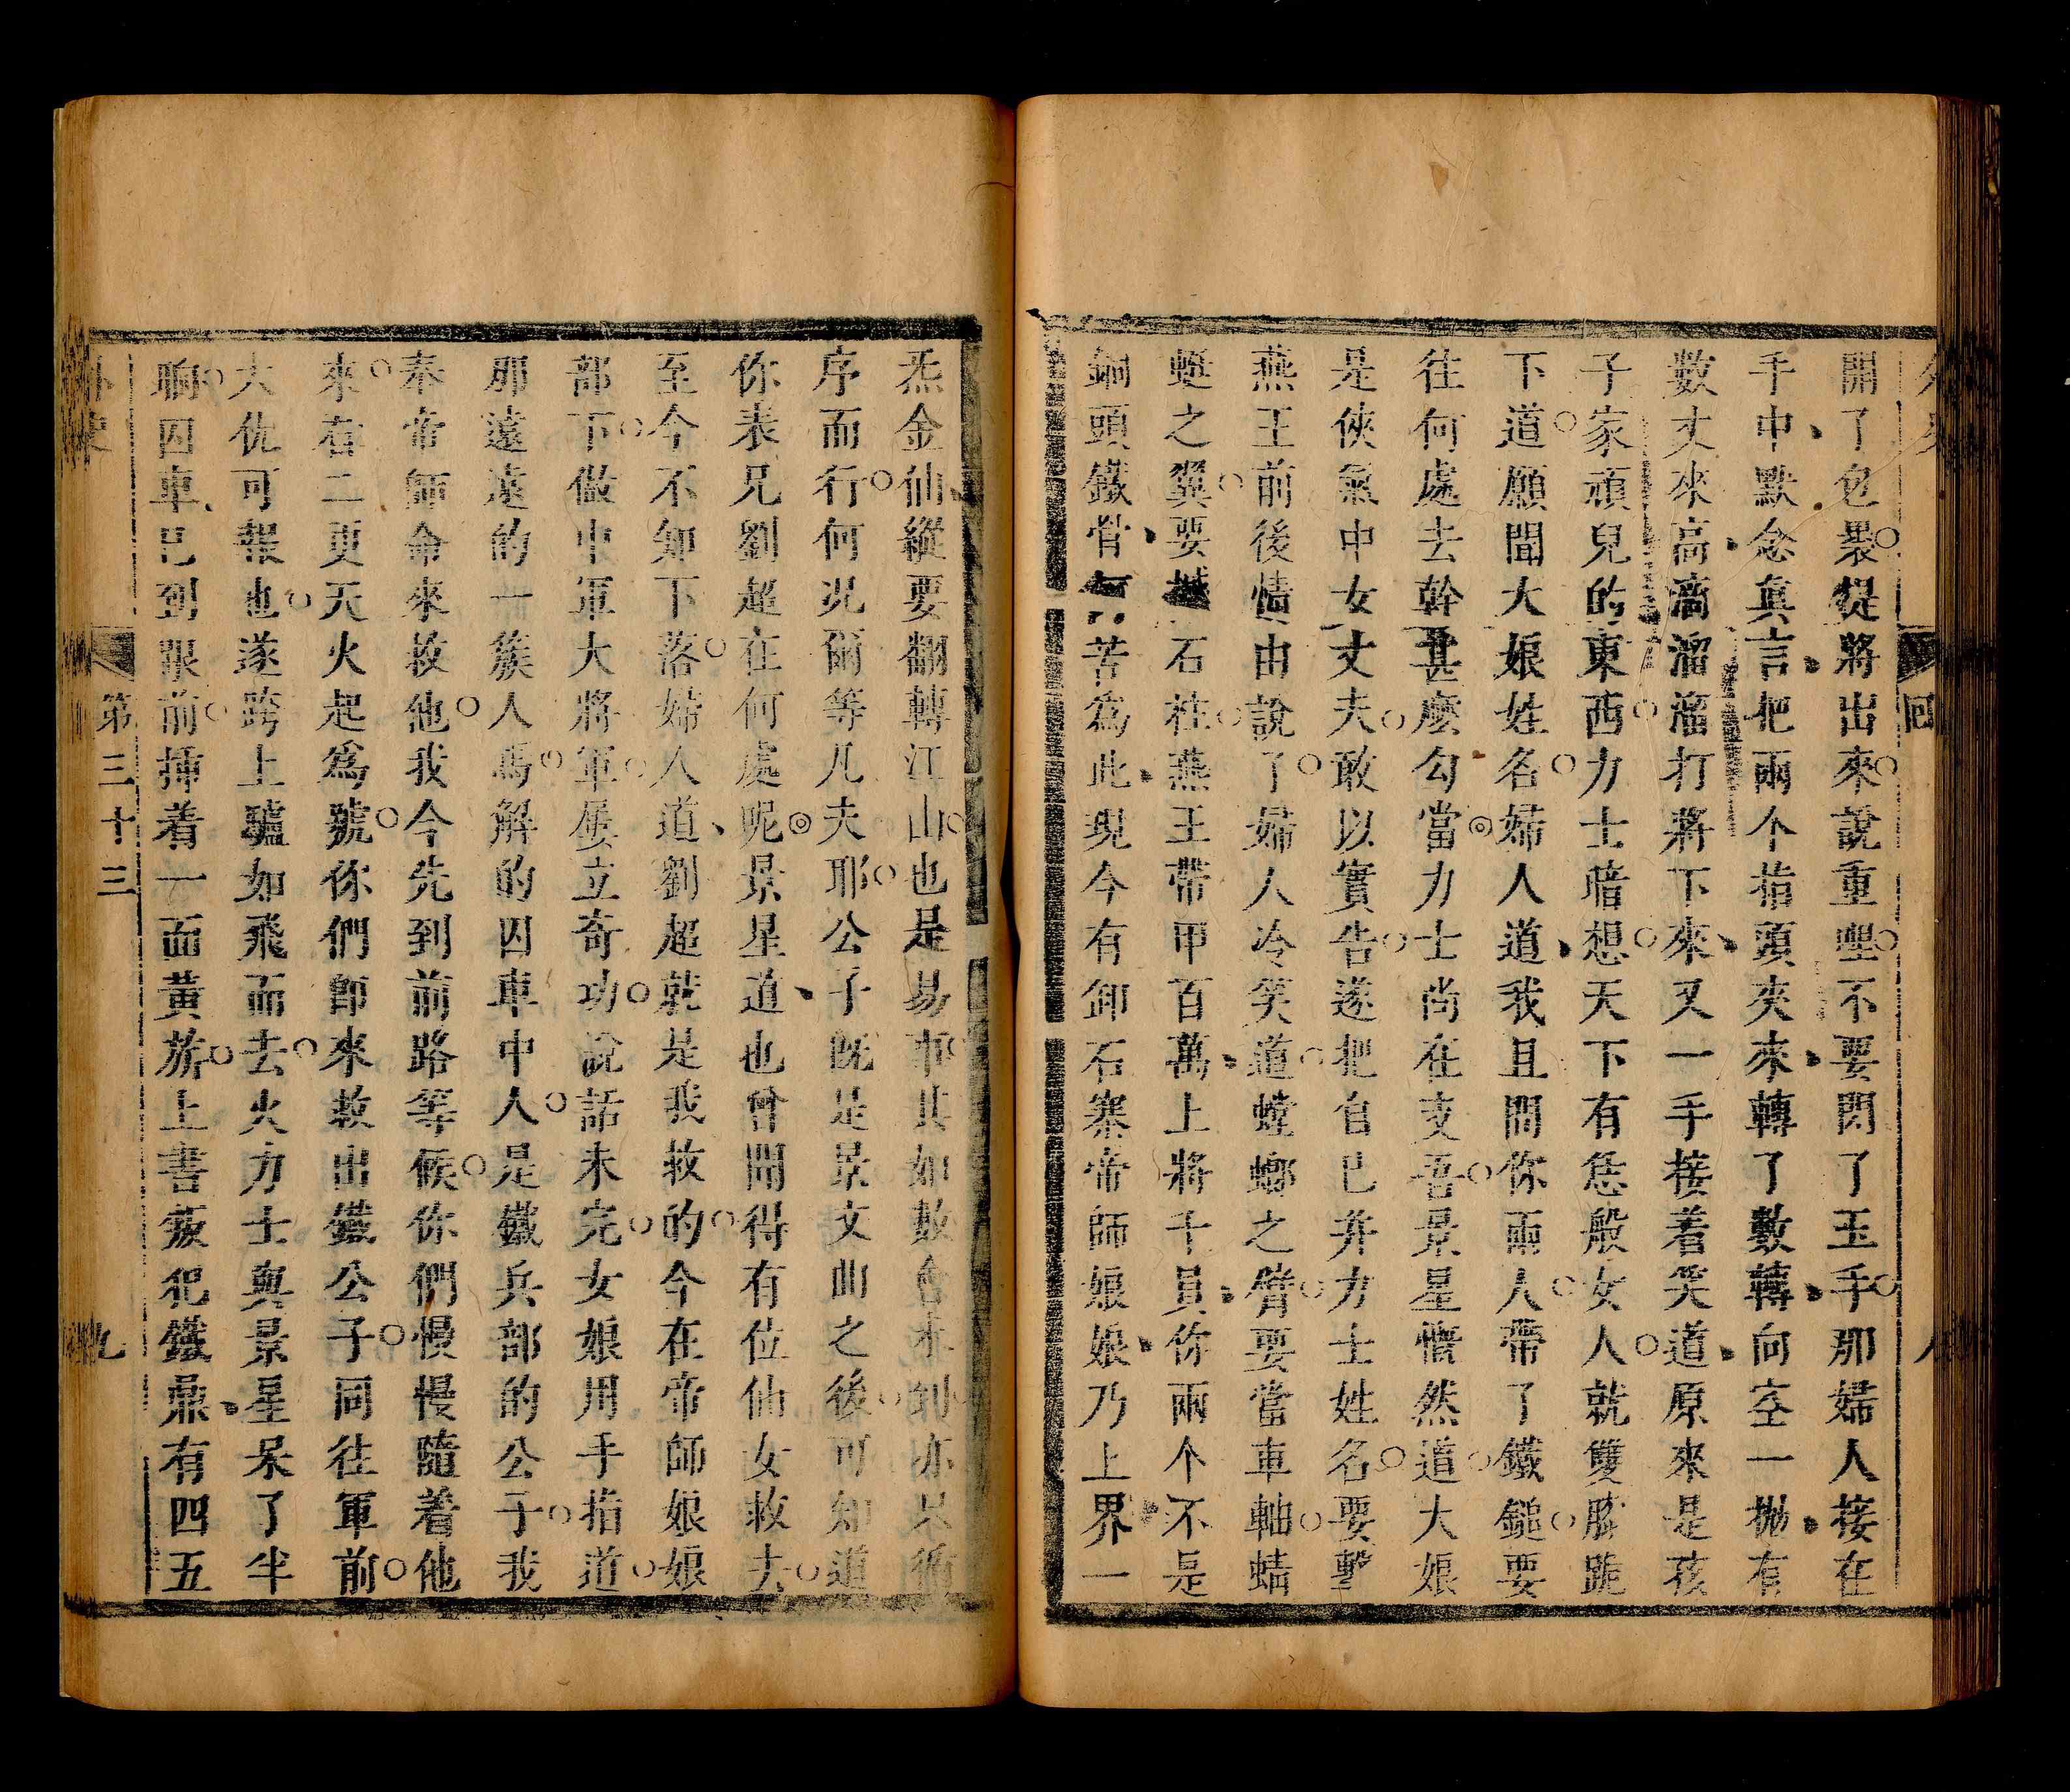 回
開了包裹提將出來說重塱不要閃了玉手那婦人接在
手中默念真言把兩个指頭夾來轉了數轉向空一拋有
數丈來高滴溜溜打將下來又一手接着笑道原來是孩
子家頑兒的東西力士暗想天下有恁般女人就雙膝跪
下道願聞大娘姓名婦人道我且問你兩人帶了鐵鎚要
往何處去幹甚麽勾當力士尚在支吾景星慨然道大娘
是俠氣中女丈夫敢以實告遂把自己并力士姓名要擊
燕王前後情由說了婦人冷笑道螳螂之臂要當車軸蜻
蜓之翼要撼石柱燕王帶甲百萬上將千員你兩个不是
銅頭鐵骨何苦爲此現今有卸石寨帝師娘娘乃上界一
炁金仙縱要翻轉江山也是易事其如數會未到亦只循
序而行何況爾等凡夫耶公子既是景文曲之後可知道
你表兄劉超在何處呢景星道也曾聞得有位仙女救去
至今不知下落婦人道劉超就是我救的今在帝師娘娘
部下做中軍大將軍屢立奇功說話未完女娘用手指道
那遠遠的一簇人馬解的囚車中人是鐵兵部的公子我
奉帝師命來救他我今先到前路等候你們慢慢隨着他
來若二更天火起爲號你們卽來救出鐵公子同往軍前
大仇可報也遂跨上驢如飛而去火力士與景星呆了半
晌囚車已到跟前揷着一面黃旂上書叛犯鐵鼎有四五
外史
第三十三
九